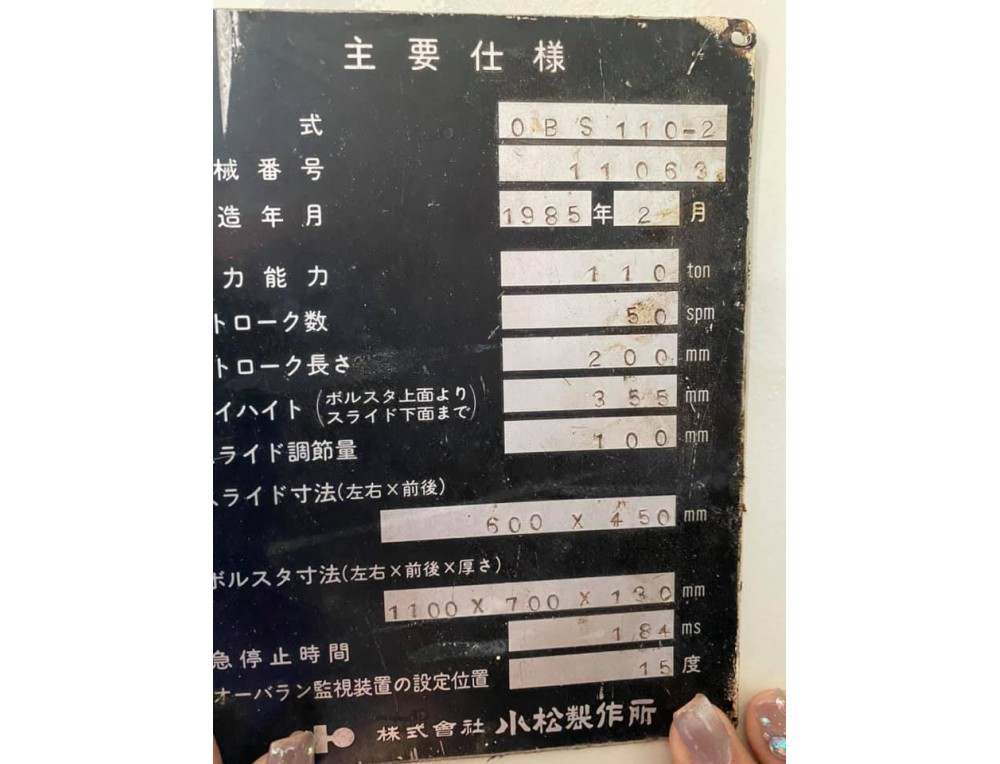 主要仕様
式 OBS110-2
械番号 11063
造年月 1985年2月
力能力 110 ton
トローク数 50 spm
トローク長さ 200 mm
イハイト (ボルスタ上面より スライド下面まで) 355 mm
ライド調節量 100 mm
スライド寸法(左右×前後)
600 X 450 mm
ボルスタ寸法(左右×前後×厚さ)
1100 X 700 X 130 mm
急停止時間 184 ms
オーバラン監視装置の設定位置 15 度
株式會社 小松製作所